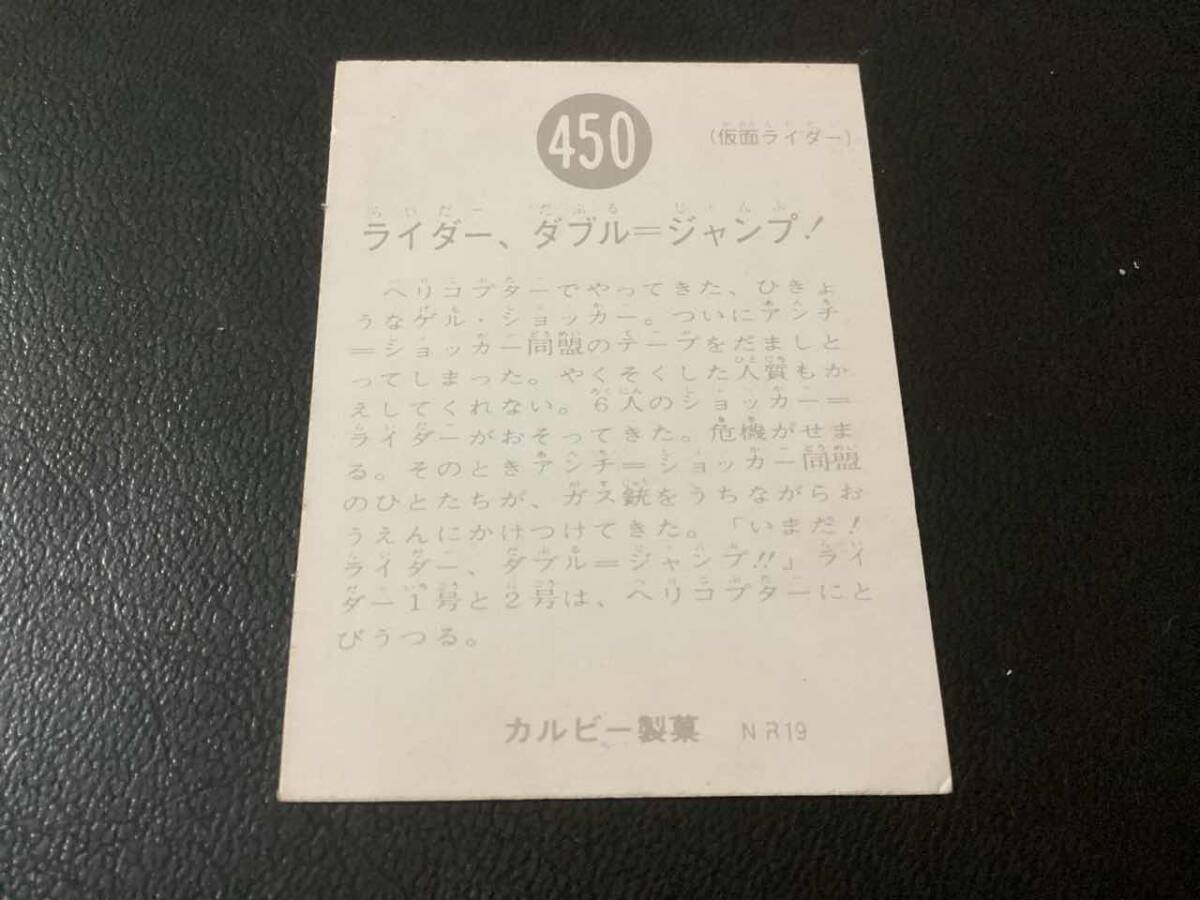 450
(仮面ライダー)
ライダー、ダブル＝ジャンプ！
ヘリコプターでやってきた、ひきょ
うなゲル・ショッカー。ついにアンチ
＝ショッカー同盟のテープをだましと
ってしまった。やくそくした人質もか
えしてくれない。6人のショッカー＝
ライダーがおそってきた。危機がせま
る。そのときアンチ＝ショッカー同盟
のひとたちが、ガス銃をうちながらお
うえんにかけつけてきた。「いまだ！
ライダー、ダブル＝ジャンプ!!」ライ
ダー1号と2号は、ヘリコプターにと
びうつる。
カルビー製菓 NR19